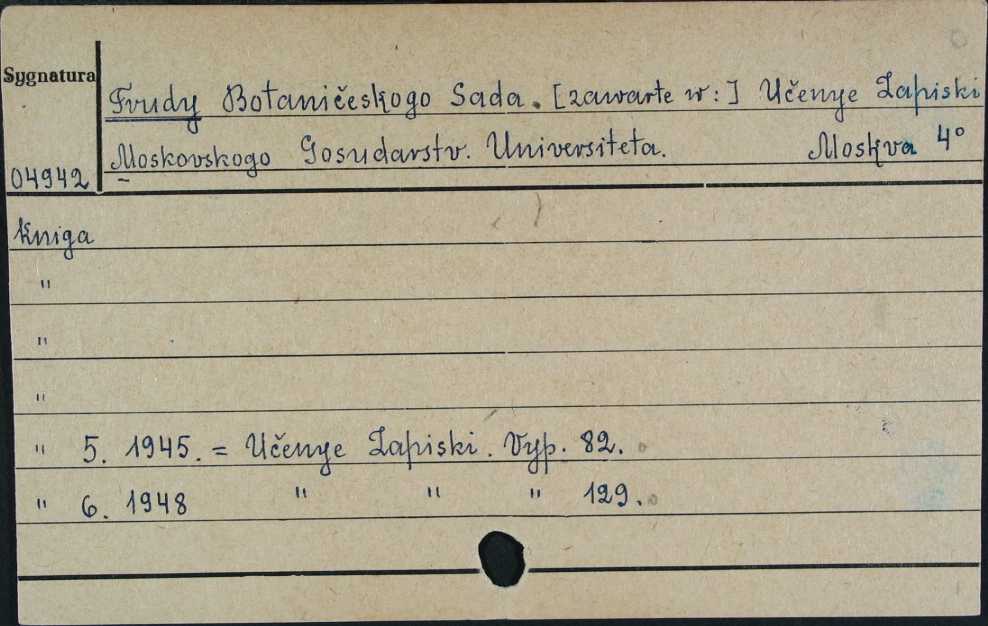 Sygnatura
Trudy Botaničeskogo Sada. [zawarte w:] Učenye Zapiski
Moskovskogo Gosudarstv. Universiteta. Moskva 4°
04942
Kniga
"
"
"
" 5. 1945. = Učenye Zapiski. Vyp. 82.
" 6. 1948 " " " 129.